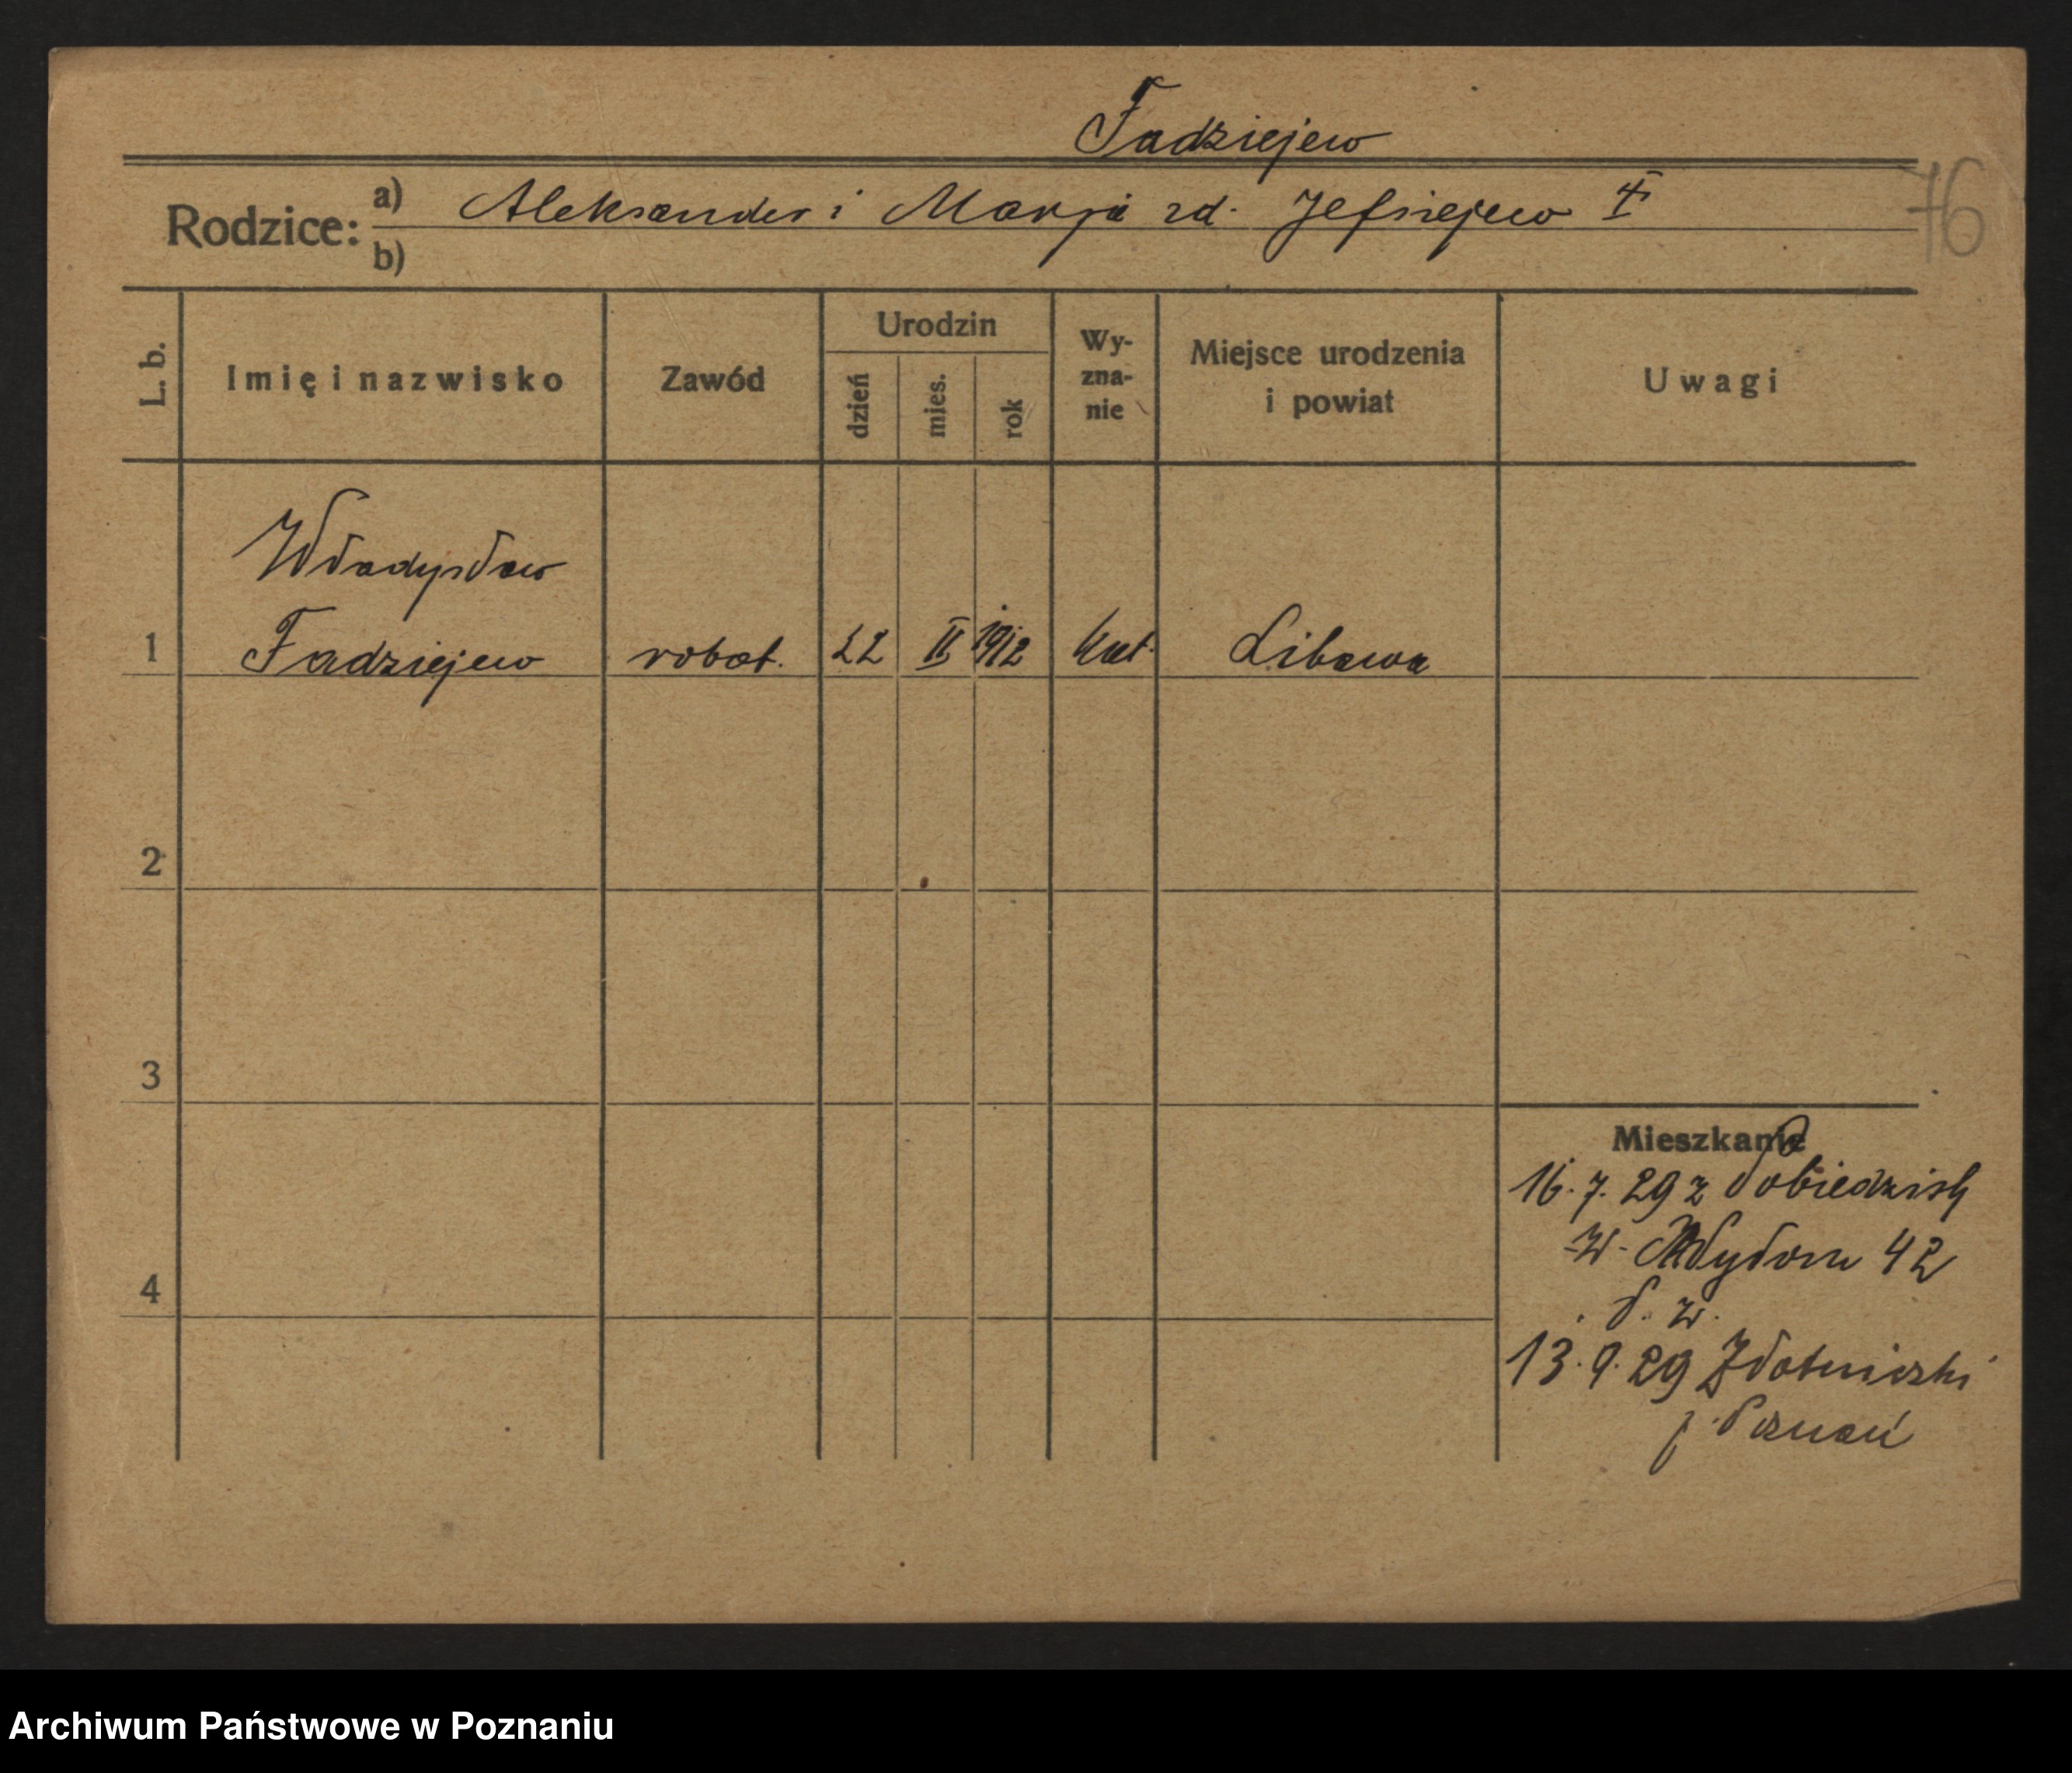 Fadziejew
76
Rodzice: a) Aleksander i Marja zd. Jefniejew
b)
L. b. Imię i nazwisko Zawód Urodzin dzień mies. rok Wy-zna-nie Miejsce urodzenia i powiat Uwagi
Władysław
1 Fadziejew robot. 22 II 1912 kat. Libawa
2
3
Mieszkanie
16.7.29 z Pobiedzisk
4
13.9.29 Złotniczki
p. Poznań
Archiwum Państwowe w Poznaniu